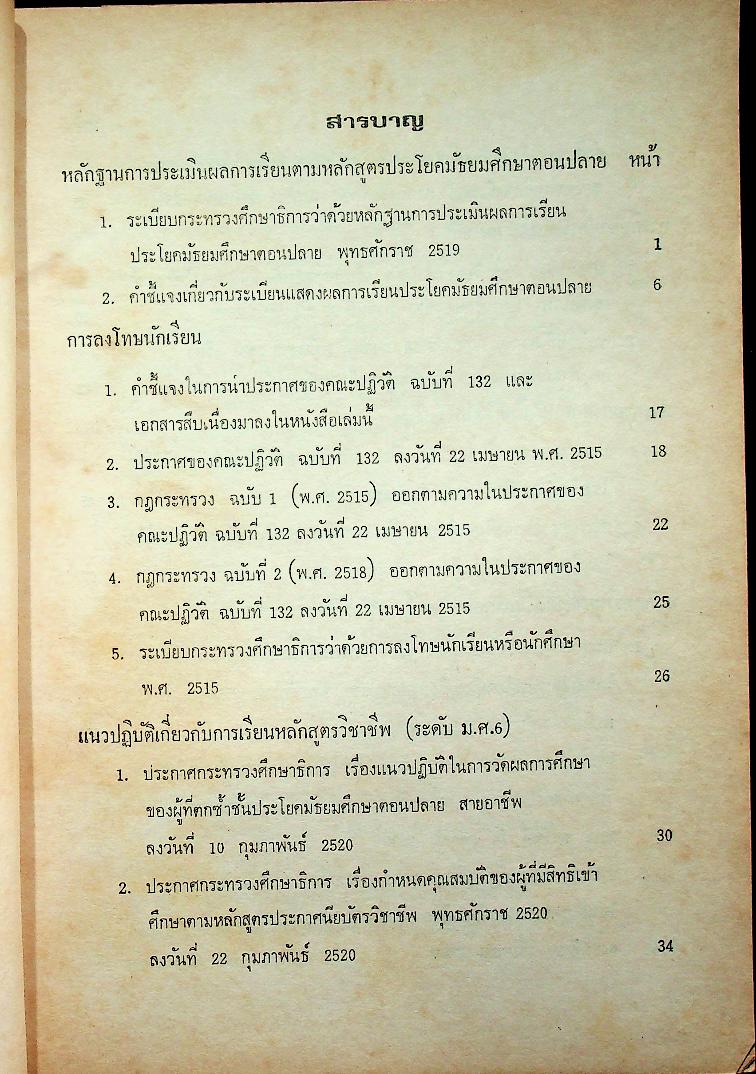 สารบาญ
หลักฐานการประเมินผลการเรียนตามหลักสูตรประโยคมัธยมศึกษาตอนปลาย หน้า
1. ระเบียบกระทรวงศึกษาธิการว่าด้วยหลักฐานการประเมินผลการเรียน
ประโยคมัธยมศึกษาตอนปลาย พุทธศักราช 2519 1
2. คำชี้แจงเกี่ยวกับระเบียนแสดงผลการเรียนประโยคมัธยมศึกษาตอนปลาย 6
การลงโทษนักเรียน
1. คำชี้แจงในการนำประกาศของคณะปฏิวัติ ฉบับที่ 132 และ
เอกสารสืบเนื่องมาลงในหนังสือเล่มนี้ 17
2. ประกาศของคณะปฏิวัติ ฉบับที่ 132 ลงวันที่ 22 เมษายน พ.ศ. 2515 18
3. กฎกระทรวง ฉบับ 1 (พ.ศ. 2515) ออกตามความในประกาศของ
คณะปฏิวัติ ฉบับที่ 132 ลงวันที่ 22 เมษายน 2515 22
4. กฎกระทรวง ฉบับที่ 2 (พ.ศ. 2518) ออกตามความในประกาศของ
คณะปฏิวัติ ฉบับที่ 132 ลงวันที่ 22 เมษายน 2515 25
5. ระเบียบกระทรวงศึกษาธิการว่าด้วยการลงโทษนักเรียนหรือนักศึกษา
พ.ศ. 2515 26
แนวปฏิบัติเกี่ยวกับการเรียนหลักสูตรวิชาชีพ (ระดับ ม.ศ.6)
1. ประกาศกระทรวงศึกษาธิการ เรื่องแนวปฏิบัติในการวัดผลการศึกษา
ของผู้ที่ตกซ้ำชั้นประโยคมัธยมศึกษาตอนปลาย สายอาชีพ
ลงวันที่ 10 กุมภาพันธ์ 2520 30
2. ประกาศกระทรวงศึกษาธิการ เรื่องกำหนดคุณสมบัติของผู้ที่มีสิทธิเข้า
ศึกษาตามหลักสูตรประกาศนียบัตรวิชาชีพ พุทธศักราช 2520
ลงวันที่ 22 กุมภาพันธ์ 2520 34